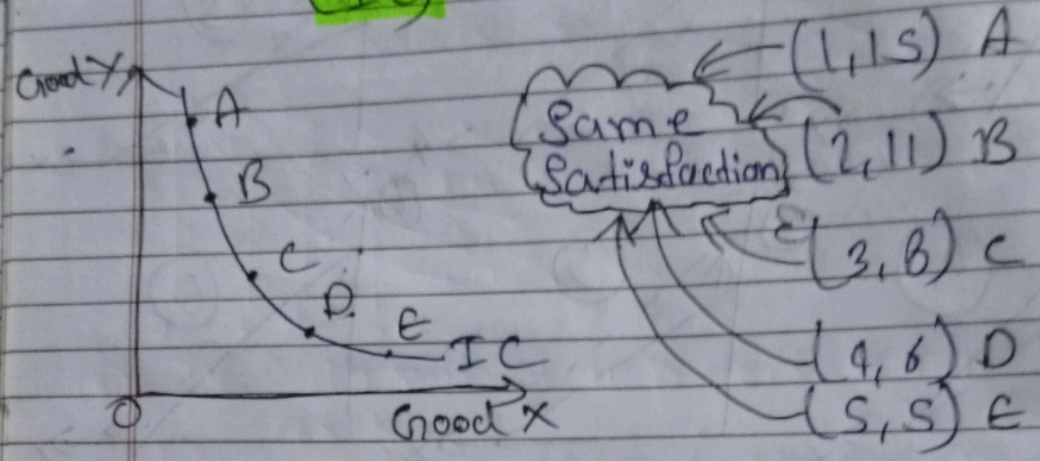 Good Y
A
B
C
D.
E
IC
O
Good X
Same
Satisfaction
(1,15) A
(2,11) B
(3,8) C
(4,6) D
(5,5) E